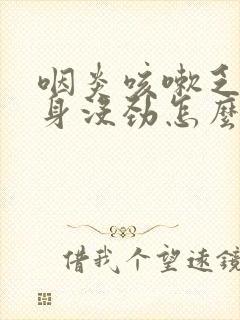 咽炎咳嗽乏
身没劲怎麽
借我个望远镜